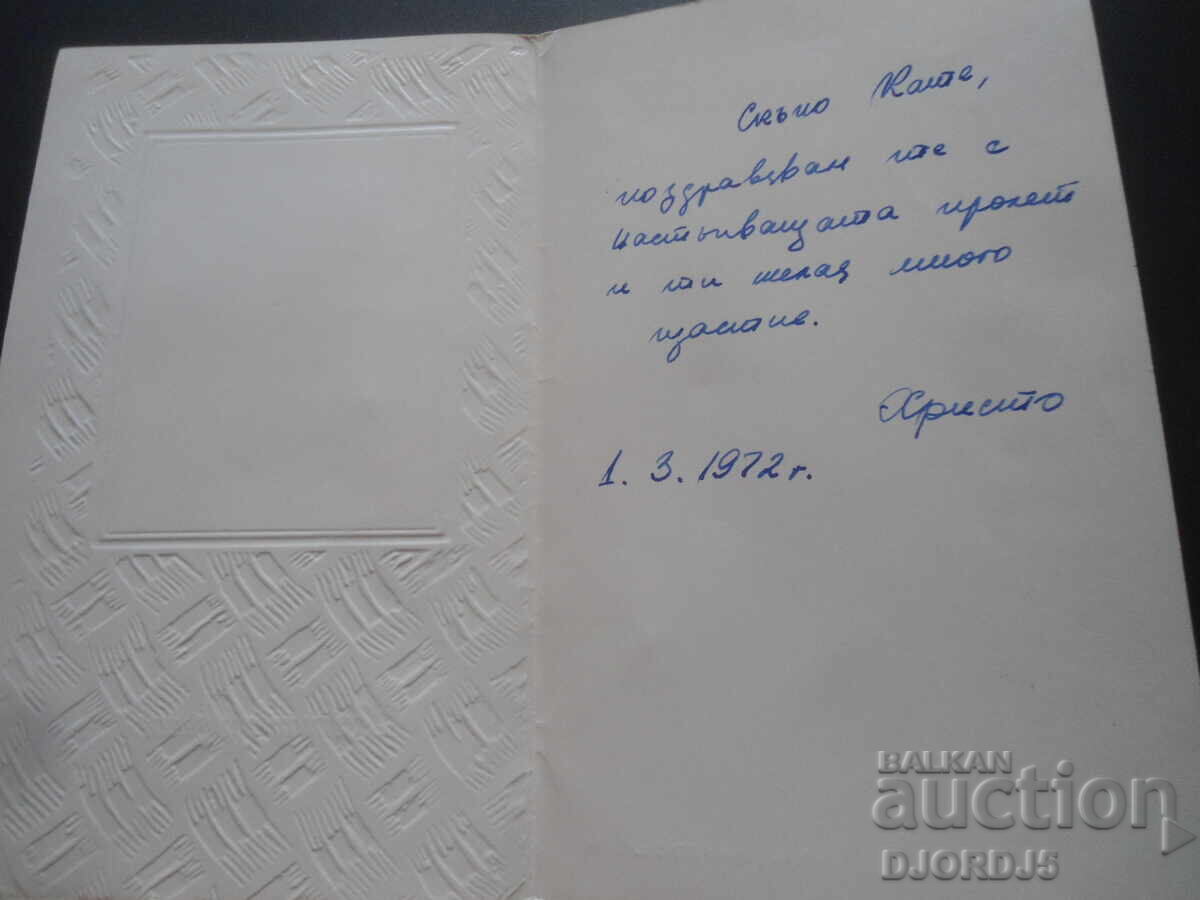 Скъпо Кате,
поздравявам те с
настъпващата пролет
и ти желая много
щастие.
Христо
1. 3. 1972 г.
BALKAN
auction
DJORDJ5